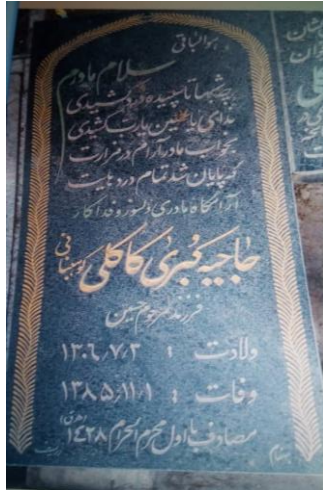 هوالباقی
سلام مادرم
چه شبها تا سپیده درد کشیدی
ندای یا حسین یارب کشیدی
بخواب مادر آرام در مزارت
که پایان شد تمام دردهایت
آرامگاه مادری دلسوز و فداکار
حاجیه کبری کاکلی
فرزند مرحوم حسین
ولادت : ۱۳۰۶/۷/۳
وفات : ۱۳۸۵/۱۱/۱
مصادف با اول محرم الحرام ۱۴۲۸